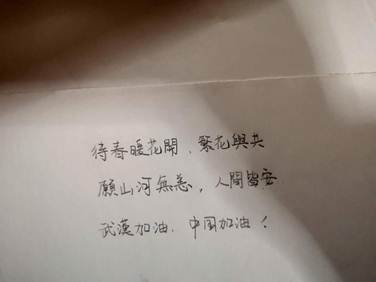 待春暖花開、繁花與共
願山河無恙，人間皆安
武漢加油、中国加油！